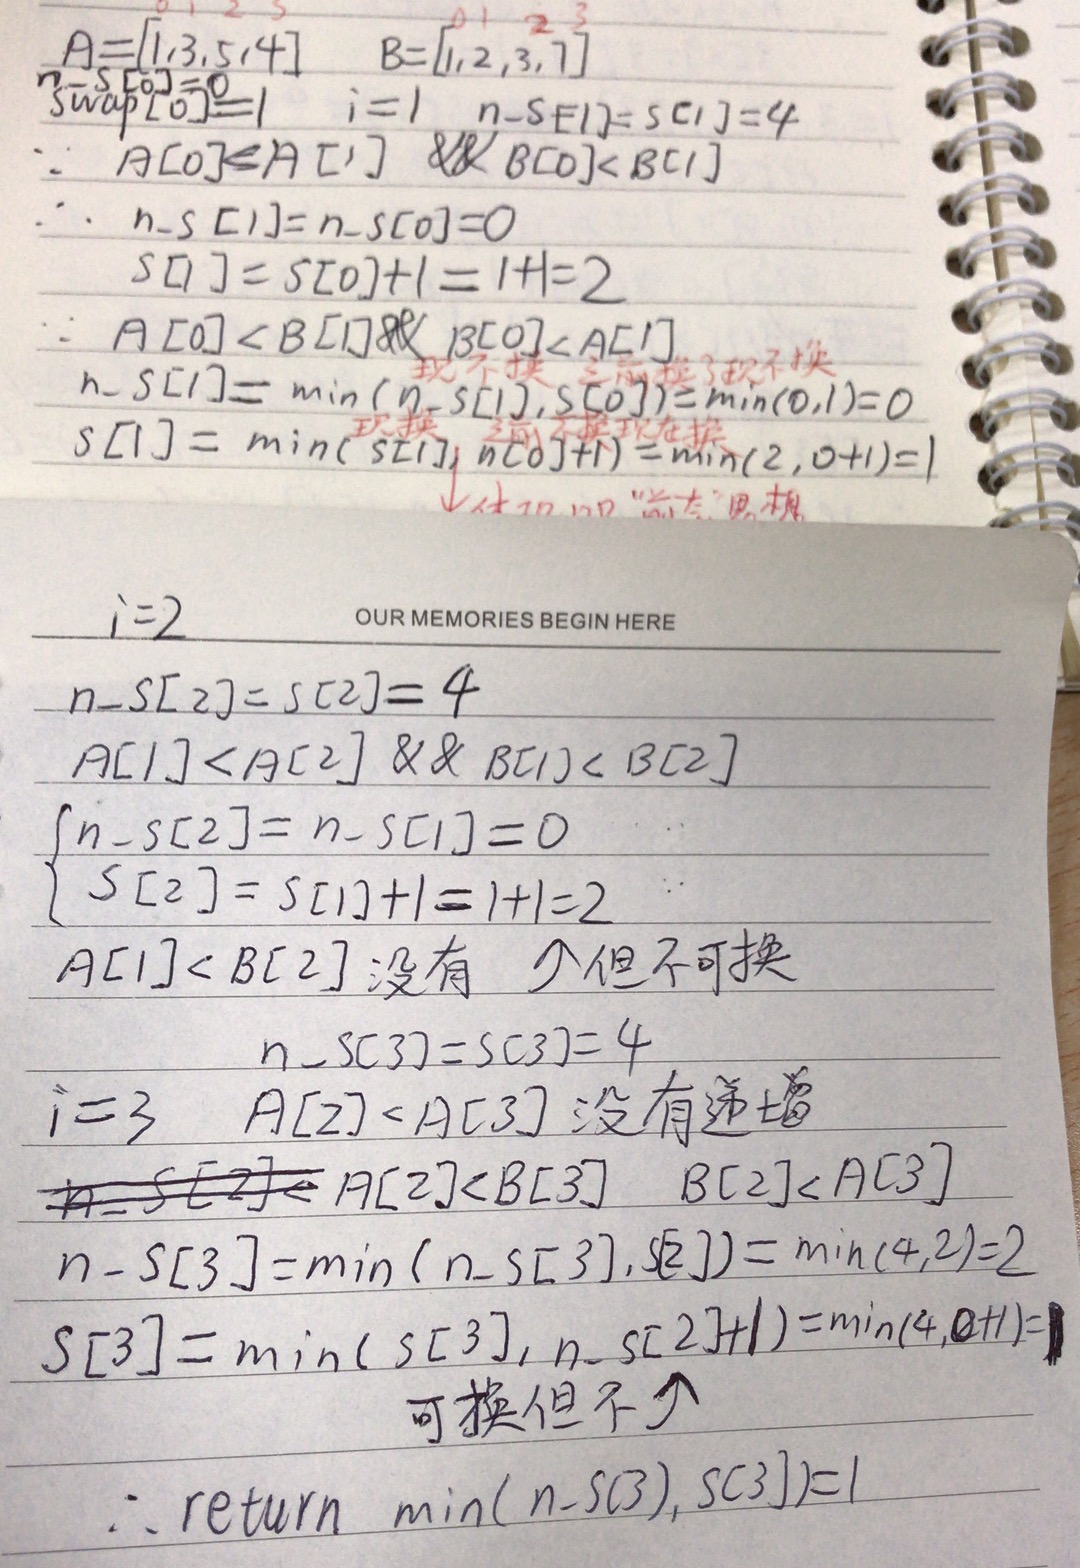 0 1 2 3 0 1 2 3
A=[1,3,5,4] B=[1,2,3,7]
n-s[0]=0
swap[0]=1 i=1 n-s[1]=s[1]=4
∵ A[0]<=A[1] && B[0]<B[1]
∴ n-s[1]=n-s[0]=0
s[1]=s[0]+1=1+1=2
∵ A[0]<B[1]&& B[0]<A[1]
现不换 之前换了现不换
n-s[1]= min(n-s[1],s[0])=min(0,1)=0
现换 之前不换现在换
s[1]= min(s[1], n[0]+1)=min(2,0+1)=1
↓
i=2 OUR MEMORIES BEGIN HERE
n-s[2]=s[2]=4
A[1]<A[2] && B[1]<B[2]
{n-s[2]=n-s[1]=0
s[2]=s[1]+1=1+1=2
A[1]<B[2]没有 ↗但不可换
n-s[3]=s[3]=4
i=3 A[2]<A[3]没有递增
A[2]<B[3] B[2]<A[3]
n-s[3]=min(n-s[3],s[2])=min(4,2)=2
s[3]=min(s[3],n-s[2]+1)=min(4,0+1)=1
可换但不↗
∴return min(n-s(3),s[3])=1